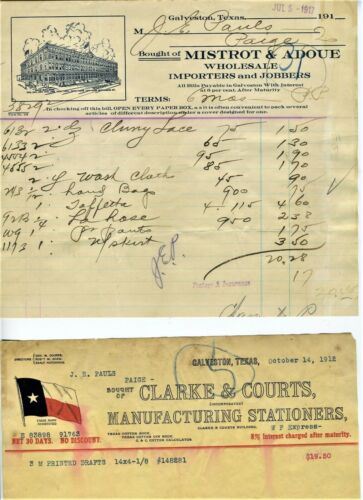 Galveston, Texas, JUL 5 - 1917 191
M J. E. Pauls
Paige
Bought of MISTROT & ADOUE
WHOLESALE
IMPORTERS and JOBBERS
All Bills Payable in Galveston With Interest
at 8 per cent. After Maturity
TERMS: 6 mos
38292
In checking off this bill, OPEN EVERY PAPER BOX, as it is often convenient to pack several
articles of different description under a cover designed for one.
6132 2 Cluny Lace 75 1.50
6133 2 65 1.30
4554 2 95 1.90
4555 2 85 1.70
2 Wash Cloth 45 90
1/2 Hand Bags 900 75
1 Taffetta 4 115 4.60
1/4 hose 950 2 38
1 Pr Pants 1.75
1173 1 U/Skirt 3.50
20.28
Postage & Insurance 17
J.E.P.
GALVESTON, TEXAS, October 14, 1912
J. E. PAULS
PAIGE -
BOUGHT OF
CLARKE & COURTS,
INCORPORATED
MANUFACTURING STATIONERS,
CLARKE & COURTS BUILDING.
W F Express-
TEXAS COTTON BOOK
TEXAS COTTON GIN BOOK
C. & C. COTTON CALCULATOR
E 83898 91763
NET 30 DAYS. NO DISCOUNT.
8% Interest charged after maturity.
3 M PRINTED DRAFTS 14x4-1/8 #148281 $19.50